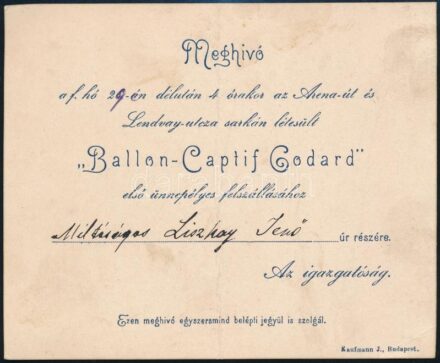 Meghivó
a f. hó 29-én délután 4 órakor az Arena-út és
Lendvay-utcza sarkán létesült
„Ballon-Captif Godard"
első ünnepélyes felszállásához
Méltóságos Liszkay Jenő úr részére.
Az igazgatóság.
Ezen meghivó egyszersmind belépti jegyül is szolgál.
Kaufmann J., Budapest.